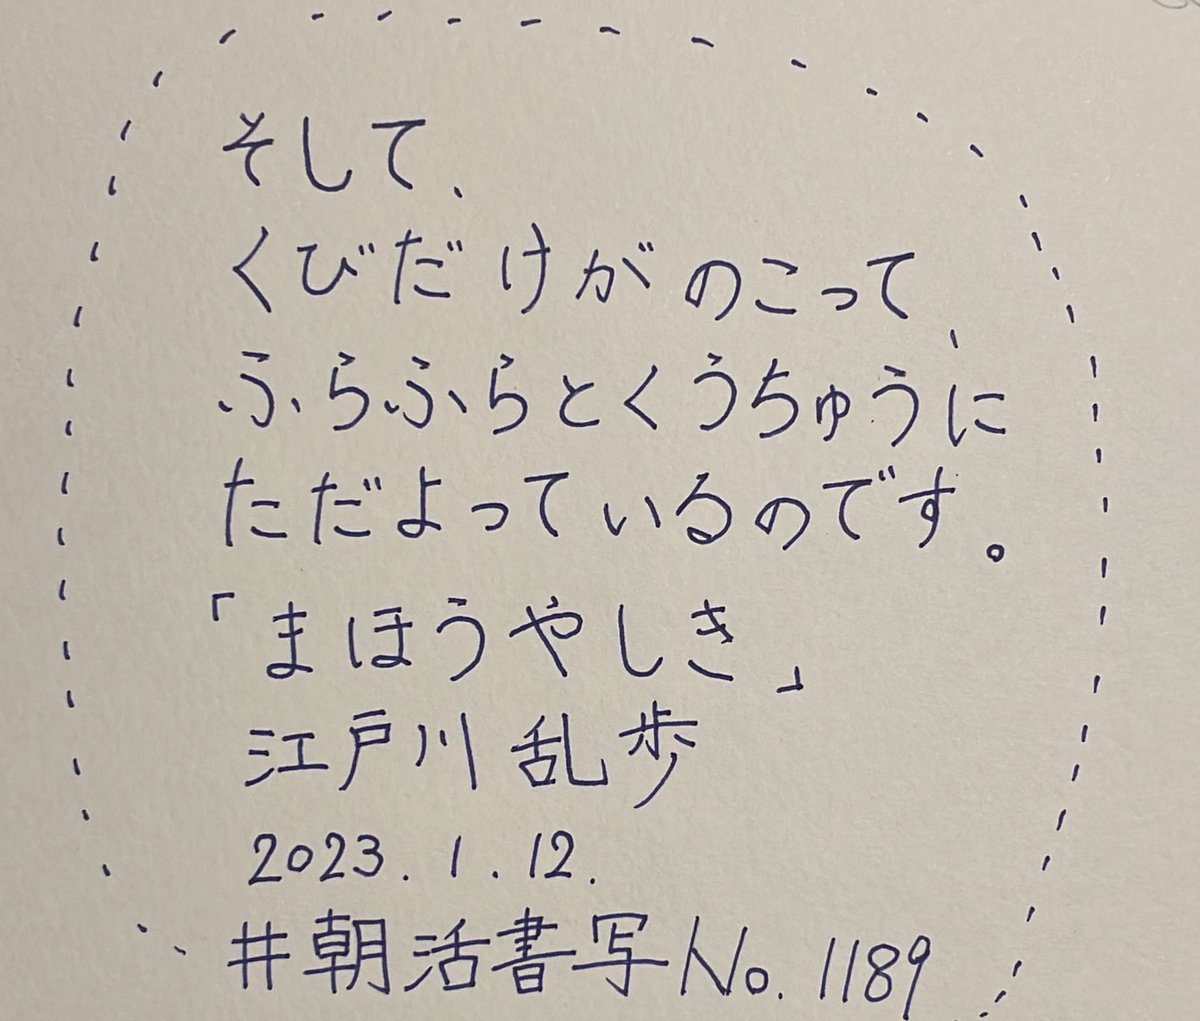 そして、
くびだけがのこって、
ふらふらとくうちゅうに
ただよっているのです。
「まほうやしき」
江戸川乱歩
2023.1.12.
#朝活書写No.1189